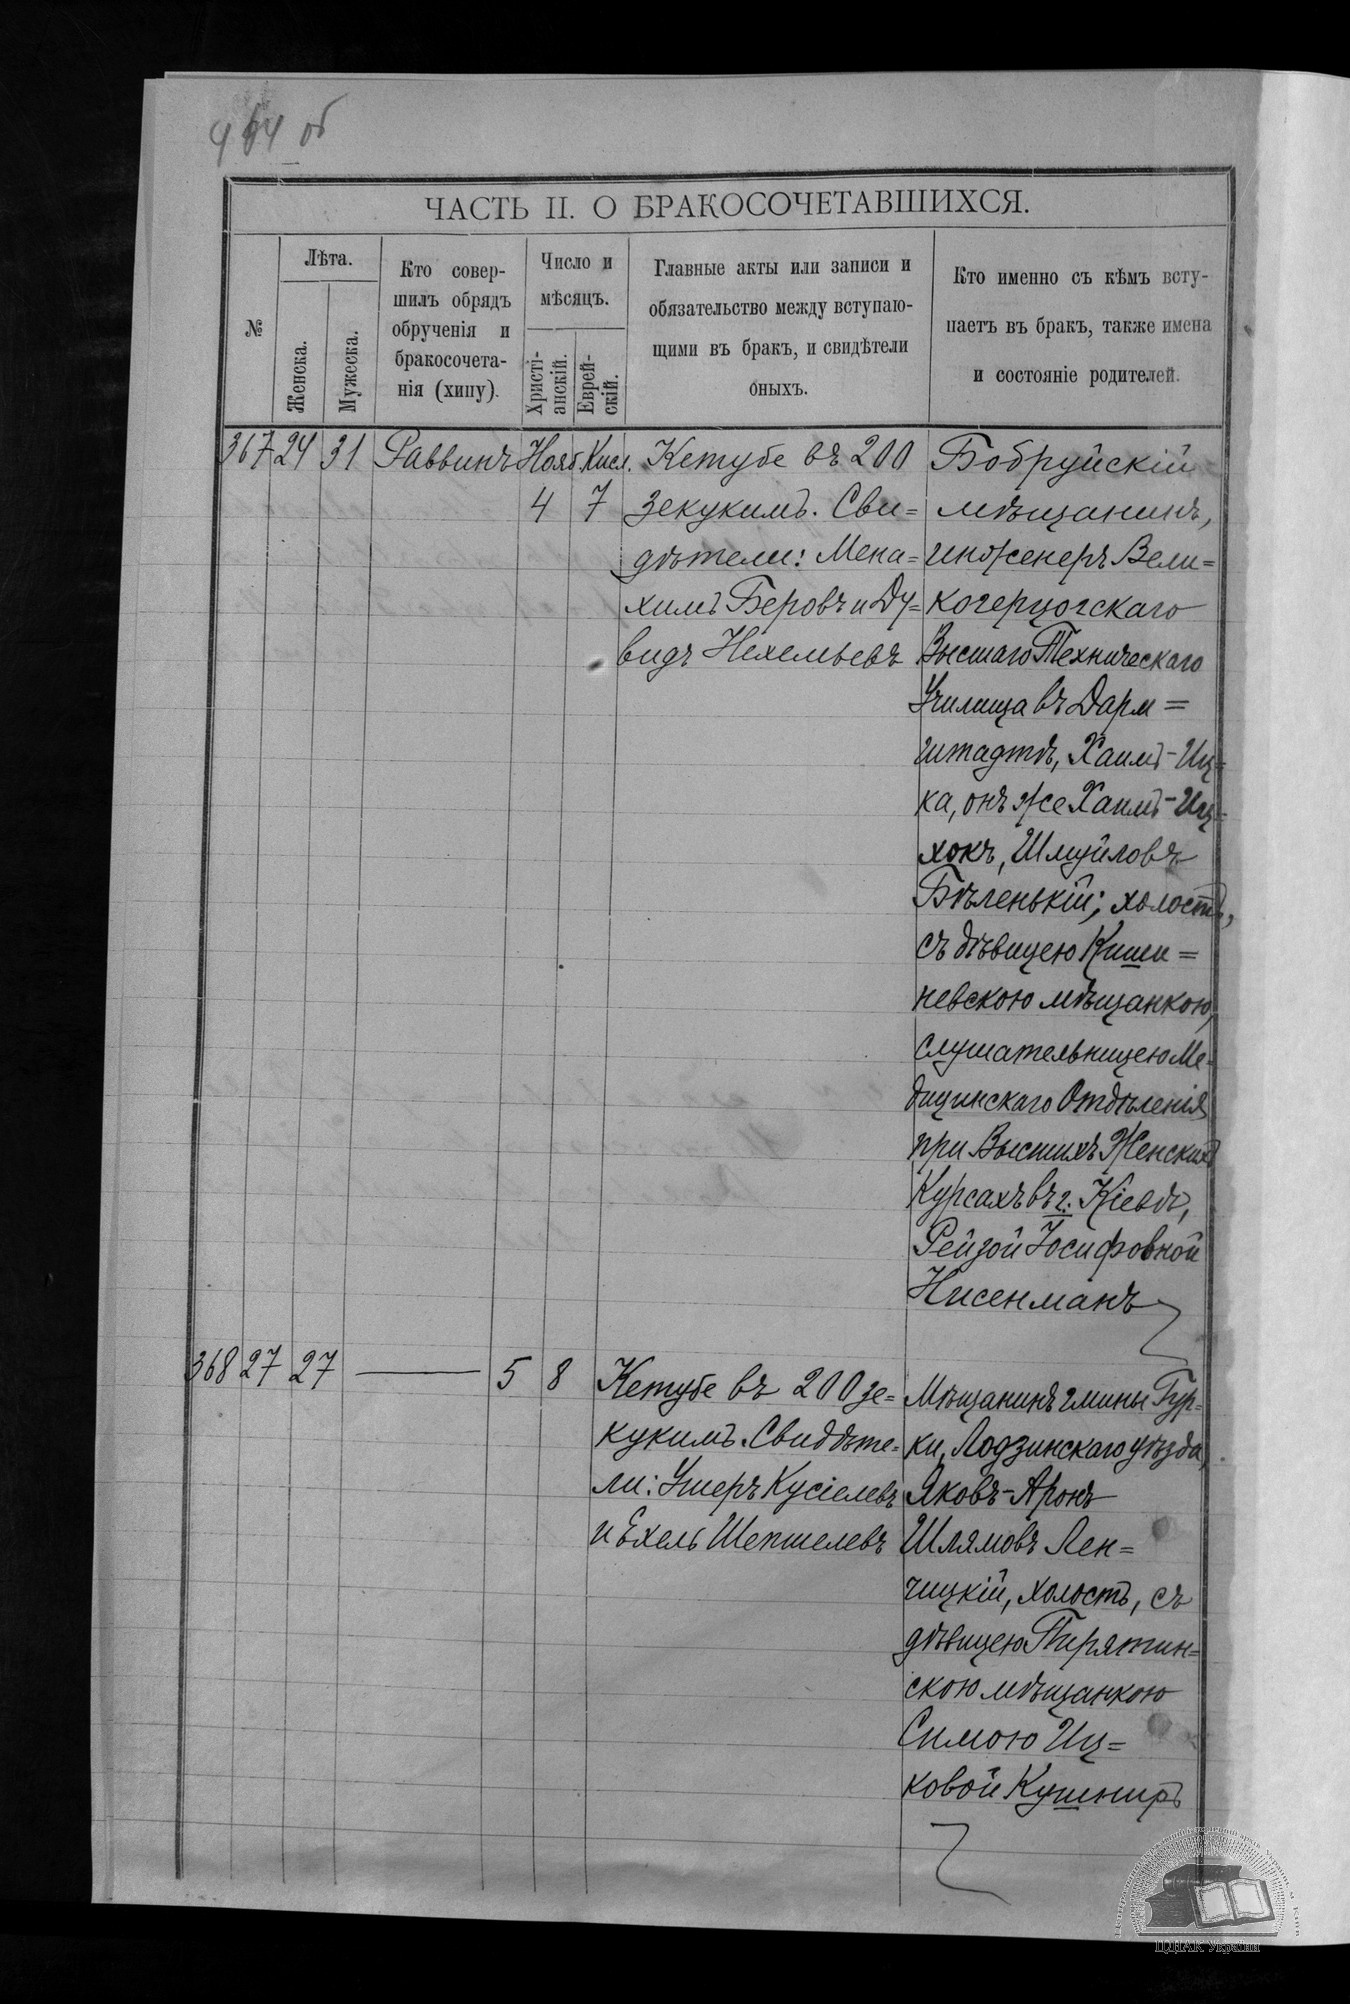 об
ЧАСТЬ II. О БРАКОСОЧЕТАВШИХСЯ.
№
Лѣта.
Женска.
Мужеска.
Кто совер-
шилъ обрядъ
обрученія и
бракосочета-
нія (хипу).
Число и
мѣсяцъ.
Христі-
анскій.
Еврей-
скій.
Главные акты или записи и
обязательство между вступаю-
щими въ бракъ, и свидѣтели
оныхъ.
Кто именно съ кѣмъ всту-
паетъ въ бракъ, также имена
и состояніе родителей.
367 24 31 Раввинъ Нояб. Кисл.
4 7
Кетубе въ 200
зекукимъ. Сви=
дѣтели: Мена=
химъ Беровъ и Ду=
видъ Нехемьевъ
Бобруйскій
мѣщанинъ,
инженеръ Вели=
когерцогскаго
Высшаго Техническаго
Училища въ Дарм=
штадтѣ, Хаимъ-Иц=
ка, онъ же Хаимъ-Иц=
хокъ, Шмуйловъ
Бѣленькій; холостъ,
съ дѣвицею Киши=
невскою мѣщанкою,
слушательницею Ме=
дицинскаго Отдѣленія
при Высшихъ Женскихъ
Курсахъ въ г. Кіевѣ,
Рейзой Іосифовной
Нисенманъ
368 27 27 — 5 8
Кетубе въ 200 зе=
кукимъ. Свидѣте=
ли: Ушеръ Кусіелевъ
и Ехель Шепшелевъ
Мѣщанинъ гмины Гур=
ки, Лодзинскаго уѣзда,
Яковъ-Аронъ
Шлямовъ Лен=
чицкій, холостъ, съ
дѣвицею Пирятин=
скою мѣщанкою
Симою Иц=
ковой Кушниръ
ЦДІАК України